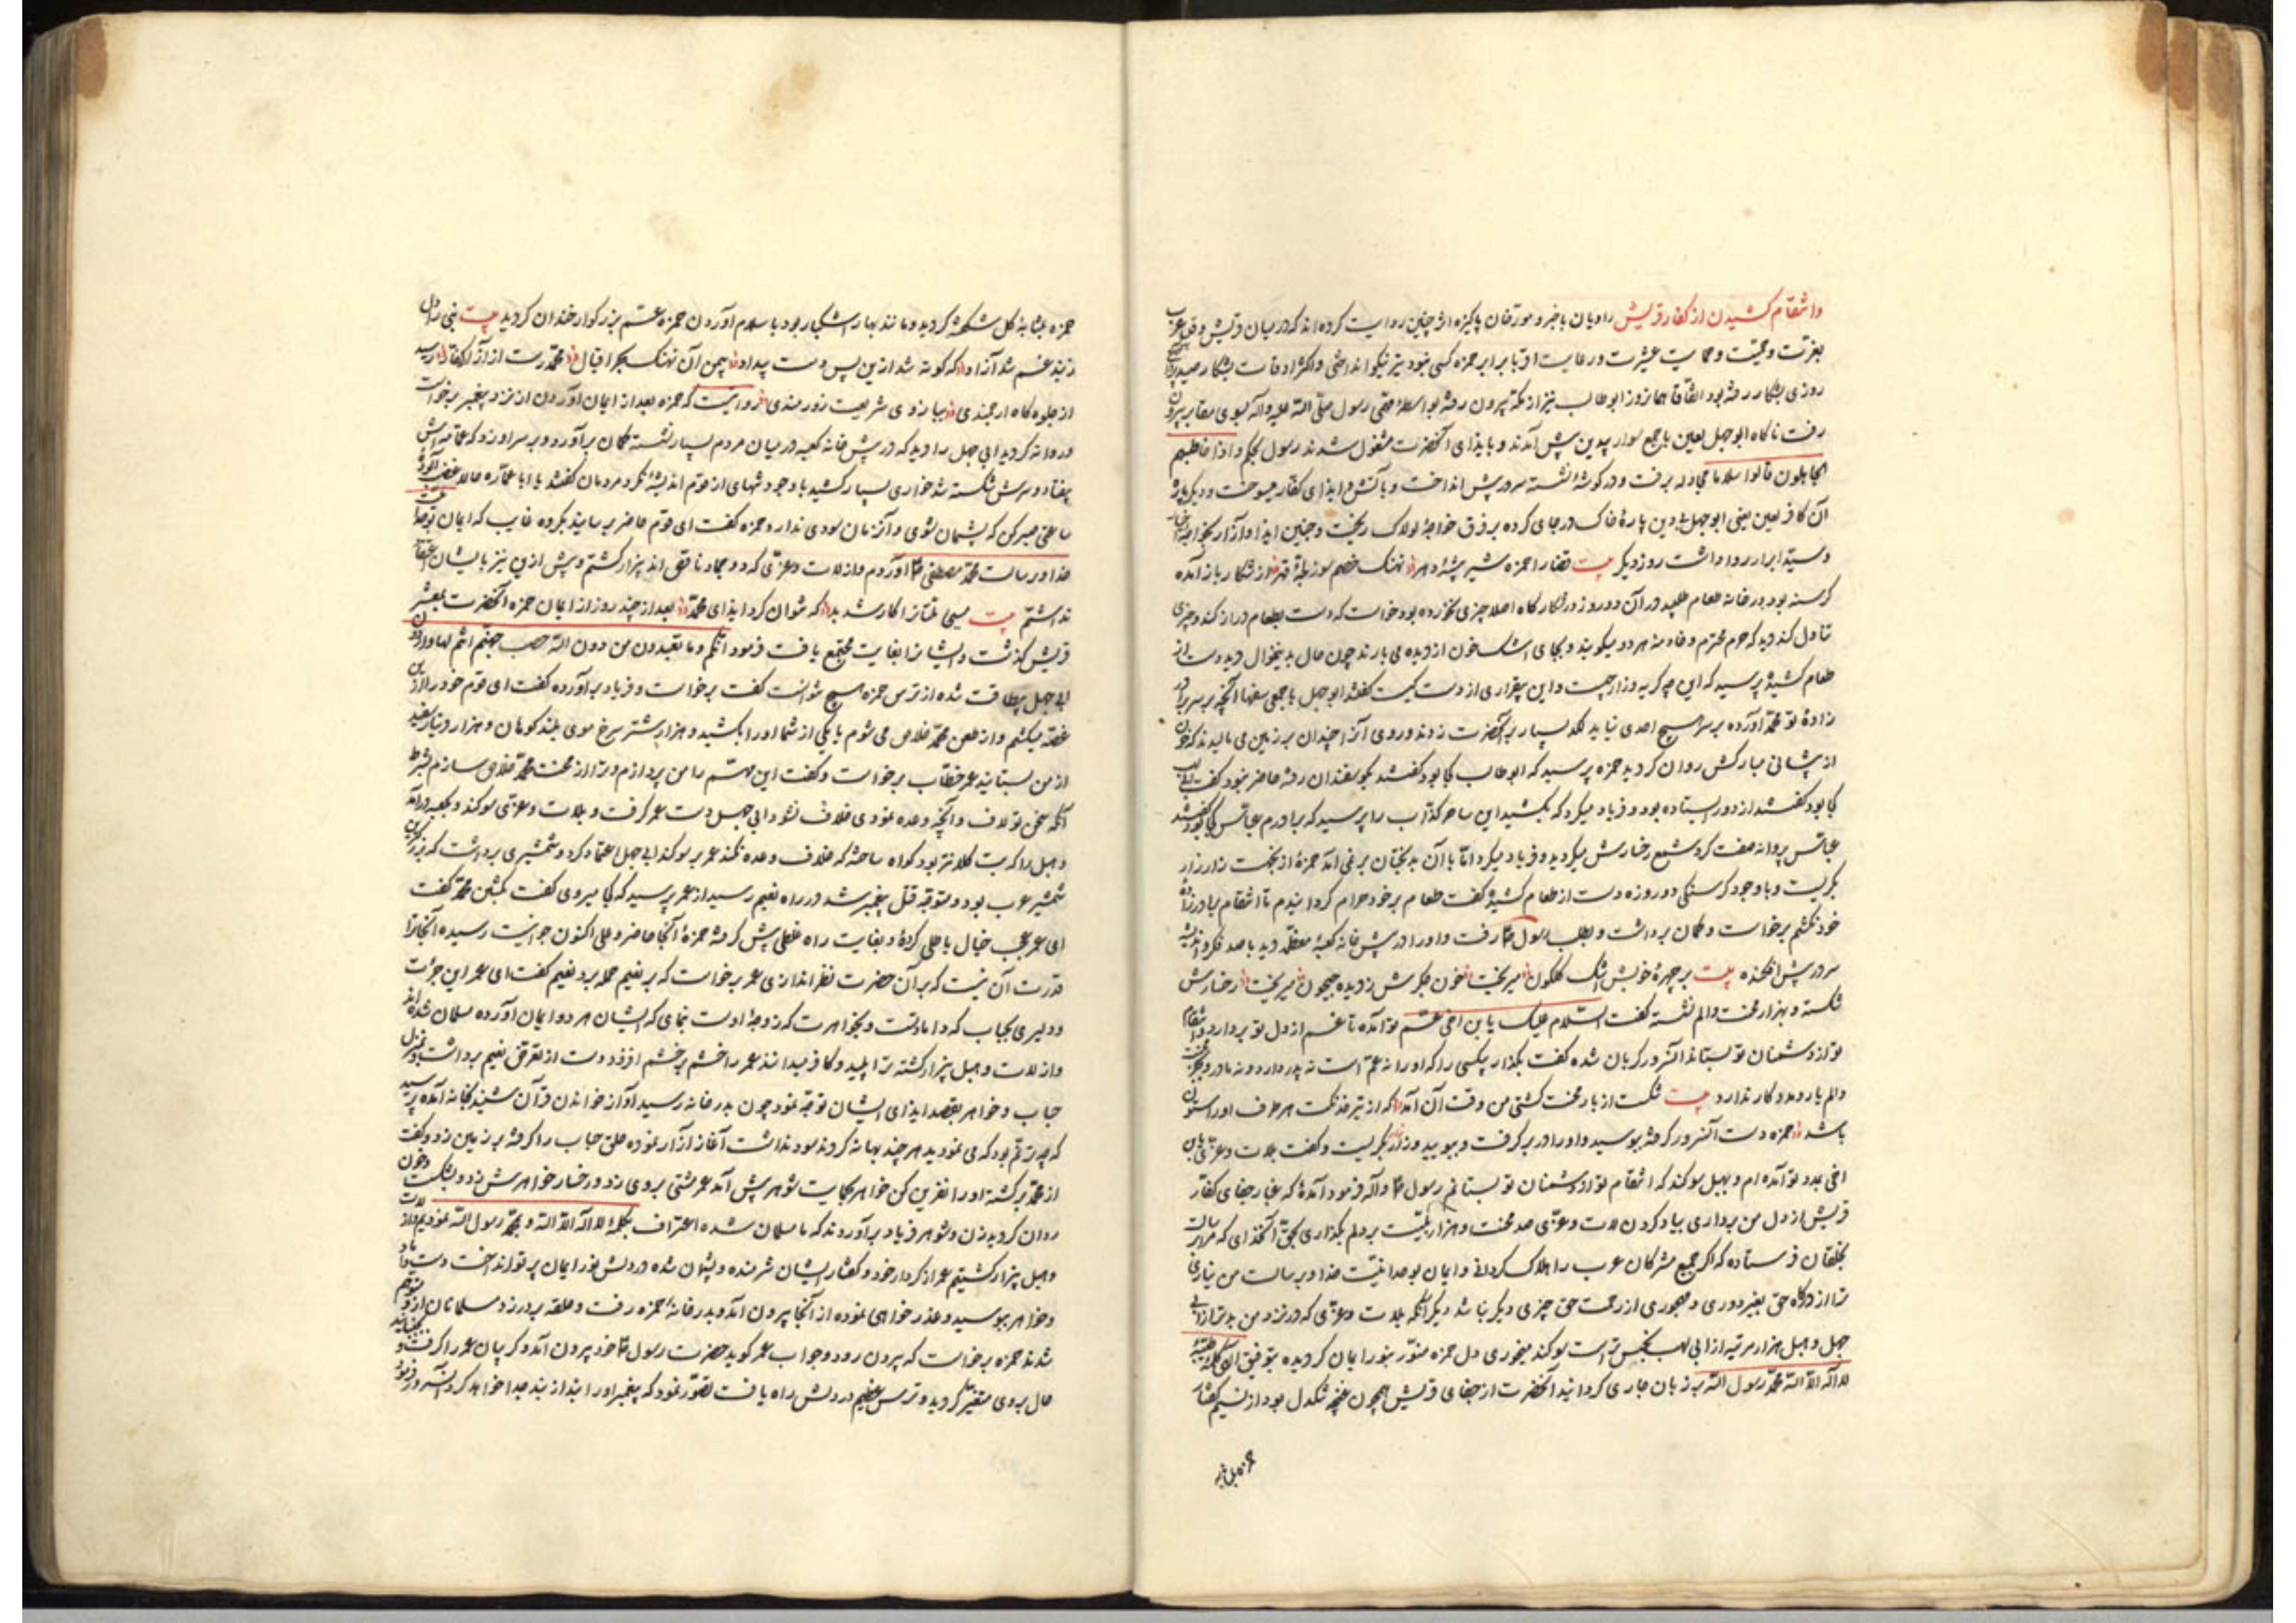 وانتقام کشیدن از کفار قریش راویان باخبر و مورخان پاکیزه اثر چنین روایت کرده اند که در میان قریش و قبایل عرب
بغیرت و حمیت و حمایت عشیرت و رعایت اقربا برابر حمزه کسی نبود تیر نیکو انداختی و اکثر اوقات بشکار صید
روزی بشکار رفته بود اتفاقا همان روز ابوطالب نیز از مکه بیرون رفته بواسطه مهمی رسول صلی الله علیه وآله بسوی مقابر بیرون
رفت ناگاه ابوجهل لعین با جمع سوار بدین پیش آمدند و بایذای آنحضرت مشغول شدند رسول بحکم واذا خاطبهم
الجاهلون قالوا سلاما مجادله برفت و در گوشه نشسته سر در پیش انداخت و بآتش ایذای کفار میسوخت و دیگر باره
آن کافر لعین یعنی ابوجهل بدین پاره خاک در جای کرده بر فرق خواجه لولاک ریخت و چنین ایذا و آزار بخواجه
وسید ابرار روا داشت روز دیگر بیت قضا را حمزه شیر بیشه دهر نهنک خصم سوز لجه قهر از شکار باز آمده
گرسنه بود در خانه طعام طلبید در آن دو روز در شکارگاه اصلا چیزی نخورده بود خواست که دست بطعام دراز کند و چیزی
تناول کند دید که حرم محترم و خادمه هر دو میگویند و بجای اشک خون از دیده می بارند چون حال بدینمنوال دید دست از
طعام کشیده پرسید که این چه گریه و زاریست و این بیقراری از دست کیست گفتند ابوجهل با جمعی سفها آنچه بر سر برادر
زاده تو محمد آورده بر سر هیچ احدی نیاید لکد بسیار بر آنحضرت زدند و روی آنرا چندان بر زمین می مالیدند که خون
از پیشانی مبارکش روان گردید حمزه پرسید که ابوطالب کجا بود گفتند بگوسفندان رفته حاضر نبود گفت ابولهب
کجا بود گفتند از دور ایستاده بود و فریاد میکرد که بکشید این ساحر کذاب را پرسید که برادرم عباس کجا بود گفتند
عباس پروانه صفت گرد شمع رخسارش میگردید و فریاد میکرد اما با آن بدبختان بر نمی آمد حمزه از نجکت زار زار
بگریست و باوجود گرسنگی دو روزه دست از طعام کشیده گفت طعام بر خود حرام گردانیدم تا انتقام برادرزاده
خود نکشم برخاست و کمان برداشت و بطلب رسول رفت و او را در پیش خانه کعبه معظمه دید با صد فکر و اندیشه
سر در پیش افکنده بیت بر چهره خویش اشک گلگون میریخت خون جگرش ز دیده جیحون میریخت رخسارش
شکسته و بهزار محنت و الم نشسته گفت السلام علیک یا بن اخی عم تو آمده تا غم از دل تو بردارد و انتقام
تو از دشمنان تو بستاند آنسرور گریان شده گفت بگذار بیکسی را که او را نه عم است نه پدر دارد و نه مادر و بجز محنت
والم یار و مددکار ندارد بیت شکست از بار محنت کشتی من وقت آن آمد که از تیر فنکت هر طرف او را ستون
باشد حمزه دست آنسرور گرفته بوسید و او را در بر گرفت و ببویید و زار بگریست و گفت بلات و عزی یا بن
اخی بمدد تو آمده ام و بهبل سوگند که انتقام تو از دشمنان تو بستانم رسول وآله فرمود آمده که غبار جفای کفار
قریش از دل من برداری بیاد کردن لات و عزی صد محنت و هزار بلیت بر دلم بگذاری بحق آنخدای که مرا برسالت
بخلقان فرستاده که اگر جمیع مشرکان عرب را هلاک گردانی و ایمان بوحدانیت خدا و برسالت من نیاری
ترا از درگاه حق بغیر دوری و مهجوری از رحمت حق چیزی دیگر نباشد دیگر آنکه بلات و عزی که در نزد من بدتر از ابی
جهل و هبل هزار مرتبه از ابی لهب نجس تر است سوگند میخوری دل حمزه منور بنور ایمان گردیده بتوفیق ان کلمه طیبه
لا اله الا الله محمد رسول الله بر زبان جاری گردانید آنحضرت از جفای قریش همچون غنچه تنگدل بود از نسیم گفتار
حمزه بمثابه
حمزه بمثابه گل شکفته گردید و مانند بهار اشکبار بود باسلام آوردن حمزه عم بزرگوار خندان گردید بیت نبی را دل
ز بند غم شد آزاد که گوته شد ازین پس دست بیداد بیمن آن نهنک بحر اقبال محمد رست از آزار کفار رسید
از جلوه گاه ارجمندی ببازوی شریعت زورمندی روایتست که حمزه بعد از ایمان آوردن از نزد پیغمبر برخواست
و روانه گردید ابی جهل را دید که در پیش خانه کعبه در میان مردم بسیار نشسته کمان برآورد و بر سر او زد که عمامه اش
بیفتاد و سرش شکسته شد خواری بسیار کشید باوجود شهای از قوم اندیشه نکرد مردمان گفتند یا ابا عماره حالا غضب آلوده
ساعتی صبر کن که پشیمان شوی و آنزمان سودی ندارد حمزه گفت ای قوم حاضر برسانید بگروه غایب که ایمان بوحدانیت
خدا و رسالت محمد مصطفی آوردم و از لات و عزی که دو جماد ناقص اند بیزار گشتم و پیش ازین نیز بایشان اعتقاد
نداشتم بیت آشکارا شد بد که نتوان کرد ایذای محمد بعد از چند روز از ایمان حمزه آنحضرت بمعشر
قریش گذشت و ایشانرا بغایت مجتمع یافت فرمود انکم وما تعبدون من دون الله حصب جهنم انتم لها واردون
ابی جهل بیطاقت شده از ترس حمزه هیچ نتوانست گفت برخواست و فریاد برآورده گفت ای قوم خود را ازین
غصه میکشم و از طعن محمد خلاص می شوم یا یکی از شما او را بکشید و هزار شتر سرخ موی بلند کوهان و هزار دینار سفید
از من بستانید عمر خطاب برخواست و گفت این مهم را من پردازم و ترا از محنت محمد خلاص سازم بشرط
آنکه سخن تو لاف و آنچه وعده نمودی خلاف نشود ابی جهل دست عمر گرفت و بلات و عزی سوگند و بکعبه درآمد
و هبل را که بت کلانتر بود گواه ساخته که خلاف وعده نکند عمر بر سوگند ابی جهل اعتماد کرد و شمشیری برداشت که بزرگترین
شمشیر عرب بود و متوجه قتل پیغمبر شد در راه نعیم رسید از عمر پرسید که کجا میروی گفت بکشتن محمد گفت
ای عمر عجب خیال باطلی کرده و بغایت راه غلطی پیش گرفته حمزه آنجا حاضر و علی اکنون جوانیست رسیده آنجا ترا
قدرت آن نیست که بر آن حضرت نظر اندازی عمر برخواست که بر نعیم حمله برد نعیم گفت ای عمر این جرأت
و دلیری بجباب که داماد تست و بخواهرت که زوجه اوست نمای که ایشان هر دو ایمان آورده مسلمان شده اند
و از لات و هبل بیزار گشته ترا پلید و کافر میدانند عمر را خشم بر خشم افزود دست از تعرض نعیم برداشت و بمنزل
جباب و خواهر بقصد ایذای ایشان توجه نمود چون بدر خانه رسید آواز خواندن قرآن شنید بخانه آمده پرسید
که چه ترنم بود که می نمودید هر چند بهانه کردند سود نداشت آغاز آزار نموده حلق جباب را گرفته بر زمین زد و گفت
از محمد برگشته او را نفرین کن خواهر بحمایت شوهر پیش آمد عمر مشتی بروی زد و رخسار خواهرش زد و بشکست و خون
روان گردید زن و شوهر فریاد برآوردند که ما مسلمان شده اعتراف بکلمه لا اله الا الله و بمحمد رسول الله نمودیم و از لات
و هبل بیزار گشتیم عمر از کردار خود و گفتار ایشان شرمنده و پشیمان شده در دلش نور ایمان پرتو انداخت دست داماد
و خواهر ببوسید و عذرخواهی نموده از آنجا بیرون آمد و بدر خانه حمزه رفت و حلقه بر در زد مسلمانان از او متوهم
شدند حمزه برخواست که بیرون رود و جواب عمر گوید حضرت رسول خود بیرون آمد و گریبان عمر را گرفت و
حال بروی متغیر گردید و ترس عظیم در دلش راه یافت تصور نمود که پیغمبر او را بند از بند جدا خواهد کرد آنسرور فرمود